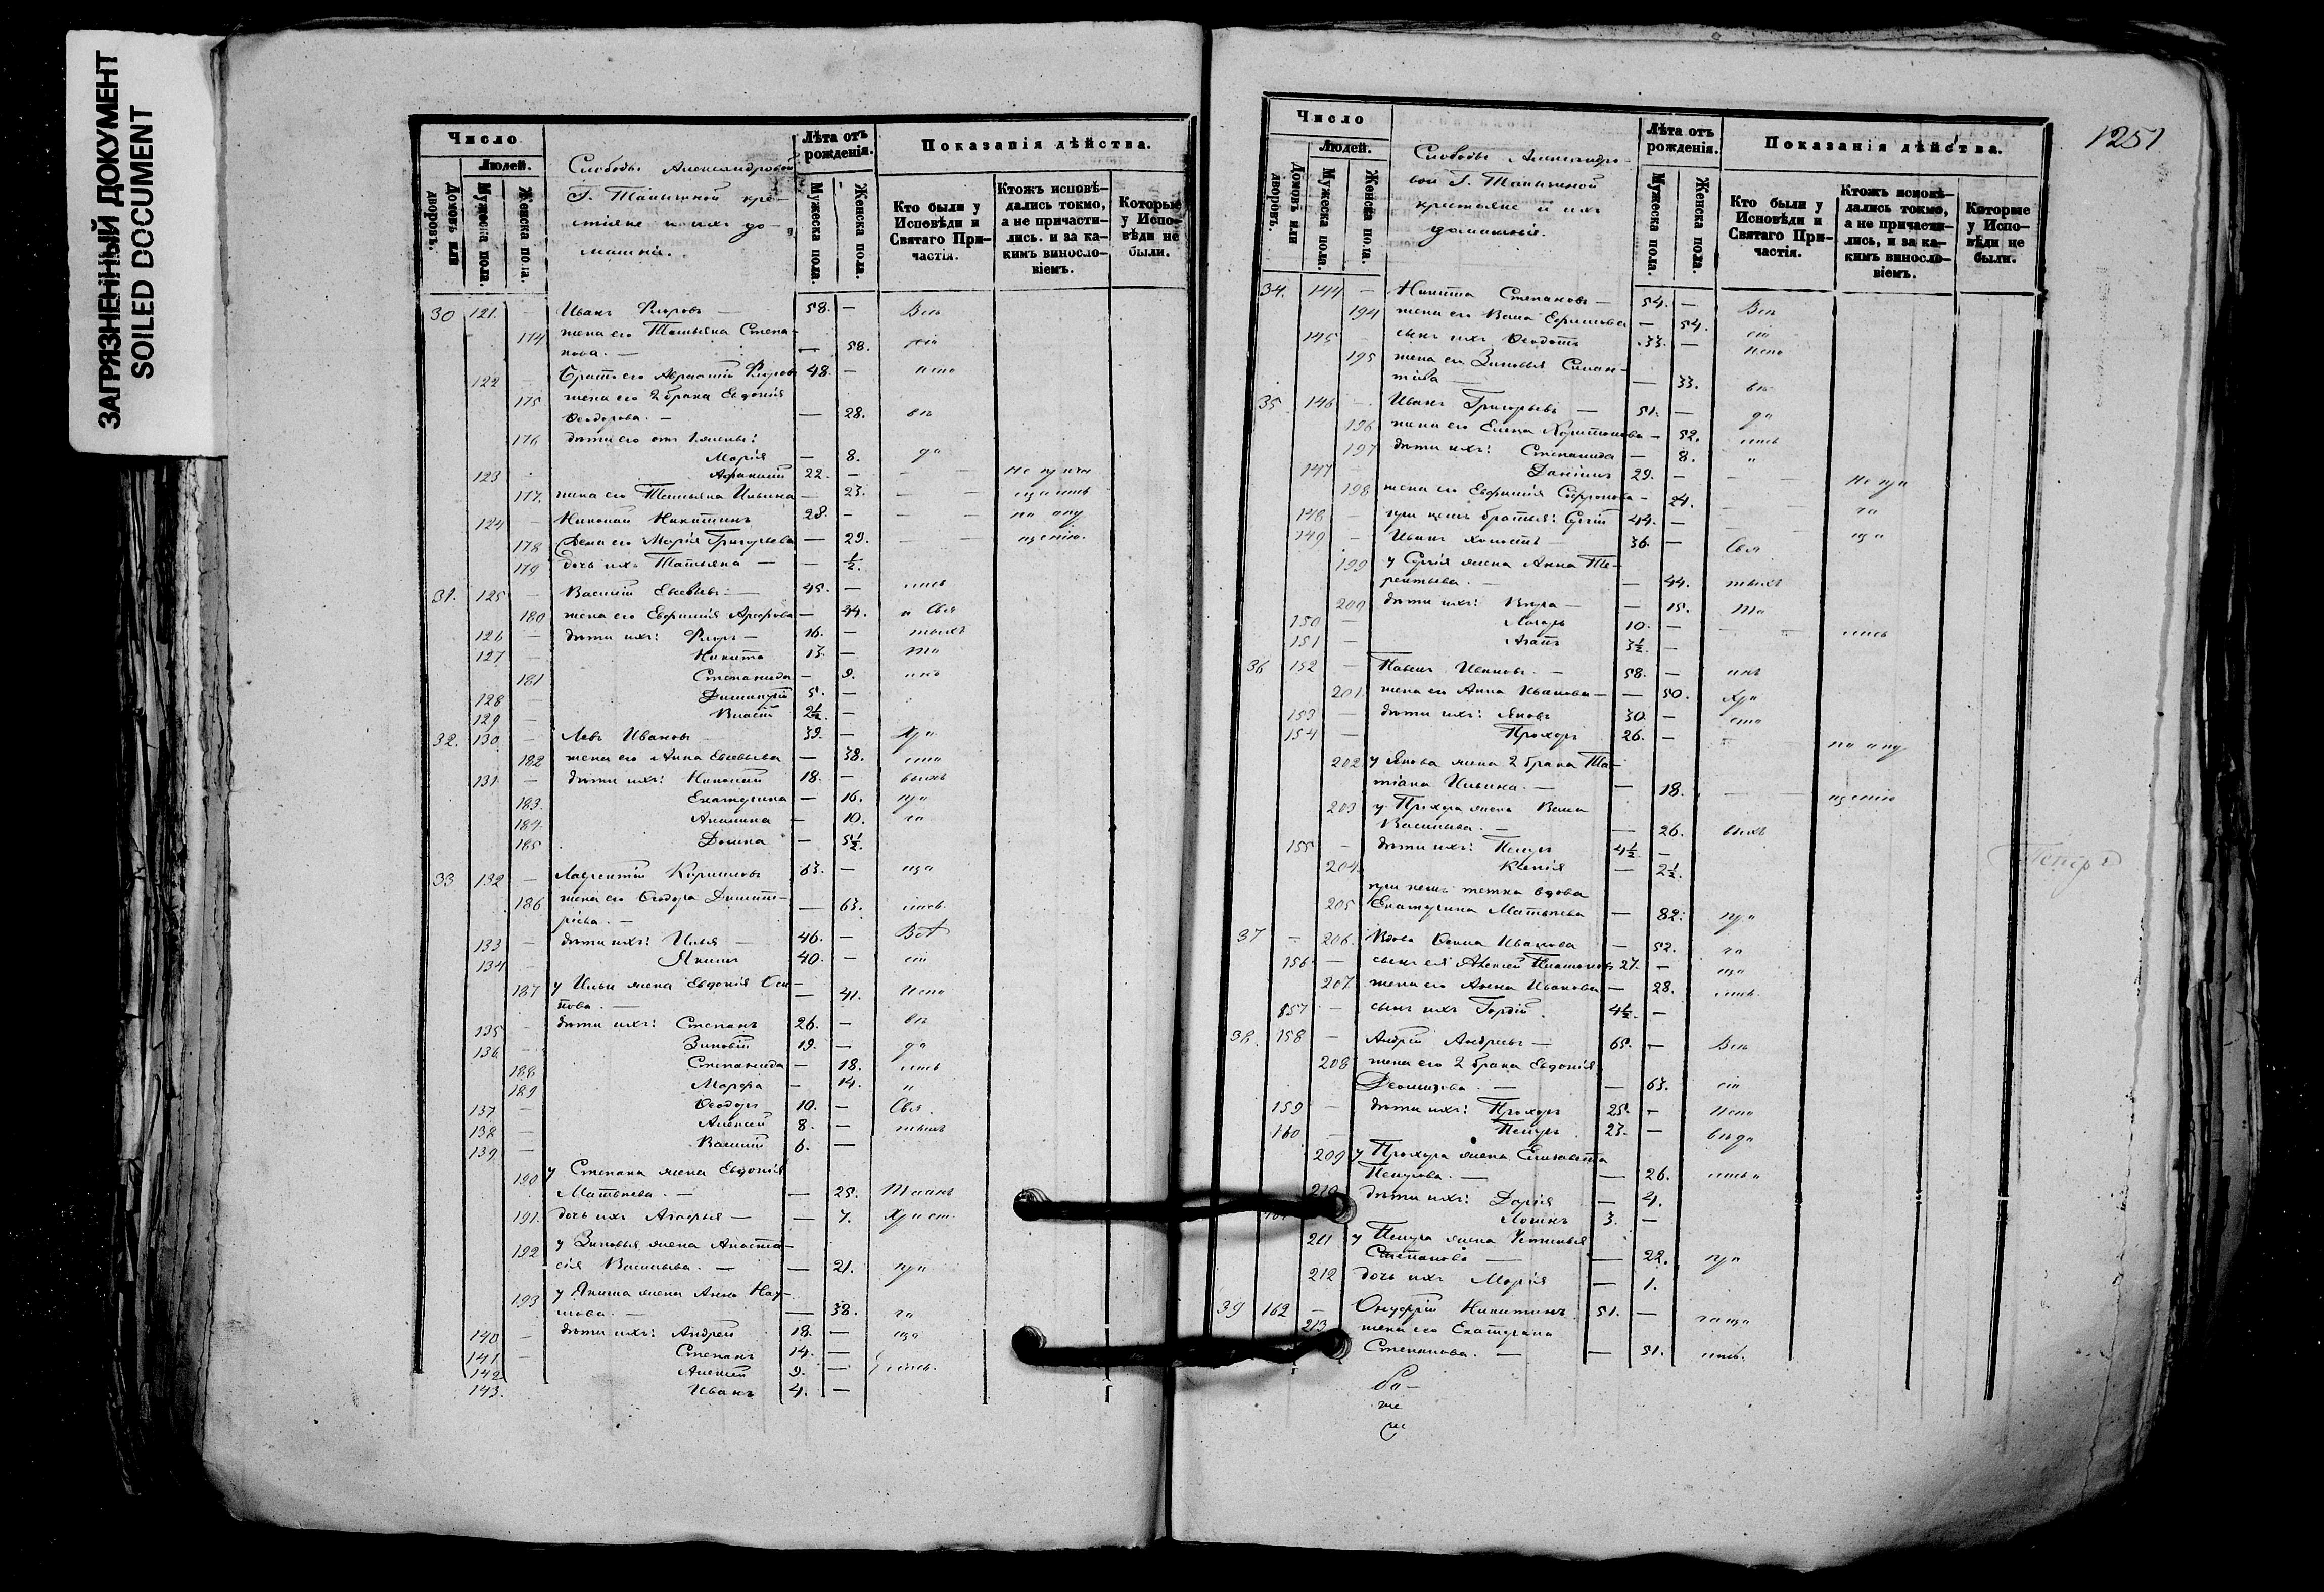 ЗАГРЯЗНЕННЫЙ ДОКУМЕНТ
SOILED DOCUMENT
Число
Людей.
Домовъ или дворовъ.
Мужеска пола.
Женска пола.
Слободы Александровой
крестьяне и ихъ до-
машніе.
Лѣта отъ рожденія.
Мужеска пола.
Женска пола.
Показанія дѣйства.
Кто были у Исповѣди и Святаго При-частія.
Ктожъ исповѣ-дались токмо, а не причасти-лись. и за ка-кимъ винословіемъ.
Которые у Испо-вѣди не были.
30 121. – Иванъ Флоровъ – 58. – Вси
174 жена его Татьяна Степа-
нова. – – 58. сіи
122 – Братъ его Авраамій Флоровъ 48. – испо
175 жена его 2 брака Евдокія
Ѳеодорова. – – 28. вѣ
176 дѣти его отъ 1 жены:
Марія – 8. да
123 – 22. –
177. жена его Татьяна Ильина – 23. – –
124 – Николай Никитинъ 28. – – – по опу
178 жена его Марія Григорьева – 29. – – щенію.
179 дочь ихъ Татьяна – – ½.
31. 125 – Василій – 45. – лись
180 жена его Евфимія – 44. и Свя
126 – дѣти ихъ: Флоръ – 16. – тыхъ
127 – Никита 13. – та
181 Степанида – 9. инъ
128 – Димитрій 5. –
129 – Власій 2½. –
32. 130 – Левъ Ивановъ 39. – Хри
182 жена его Анна – 38. сто
131 – дѣти ихъ: Николай 18. – выхъ
183. Екатерина – 16. при
184. Акилина – 10. ча
185 Домна – 5½.
33 132 – Лаврентій 63. – ща
186 жена его Ѳеодора Димит-
ріева. – – 63. лись.
133 – дѣти ихъ: Илья – 46. – Всѣ
134 – Якимъ 40. – сіи
187 у Ильи жена Евдокія Оси-
пова. – – 41. Испо
135 – дѣти ихъ: Степанъ 26. – вѣ
136 – Зиновій 19. – да
188 Степанида – 18. лись
189 Марфа – 14. и
137 – Ѳеодоръ 10. – Свя
138 – Алексѣй 8. – тыхъ
139 – Василій 6. –
190 у Степана жена Евдокія
Матвѣева. – – 25. Таинъ
191. дочь ихъ – – 7. Христ.
192 у Зиновья жена Анаста-
сія Васильева. – – 21. при
193 у Якима жена Анна Нау-
мова. – – 38. ча
140 – дѣти ихъ: Андрей 18. – ща
141 – Степанъ 14. –
142 Алексѣй 9. – лись.
143. Иванъ 4. –
1251
Число
Людей.
Домовъ или дворовъ.
Мужеска пола.
Женска пола.
Слободы Александро-
вой
крестьяне и ихъ
домашніе.
Лѣта отъ рожденія.
Мужеска пола.
Женска пола.
Показанія дѣйства.
Кто были у Исповѣди и Святаго При-частія.
Ктожъ исповѣ-дались токмо, а не причасти-лись, и за ка-кимъ винословіемъ.
Которые у Испо-вѣди не были.
34. 144 – Никита Степановъ – 54. – Вси
194 жена его Васса Ефимова – 54. сіи
145 – сынъ ихъ Ѳеодотъ 33. – Испо
195 жена его Зиновья Силан-
тіева – – 33. вѣ
35 146 – Иванъ Григорьевъ – 51. – да
196 жена его Елена Харитонова – 52. лись
197 дѣти ихъ: Степанида – 8. "
147 – Даніилъ 29. – – – Не при
198 жена его Евфимія Софронова – 24. – ча
148 – при немъ братья: Сергій 44. – – – ща
149 – Иванъ холостъ – 36. – Свя
199 у Сергія жена Анна Те-
рентьева. – – 44. тыхъ
200 дѣти ихъ: Вѣра – – 15. та
150 – Лазарь 10. – – – лись
151 – Агапъ 3½. –
36 152 – Павелъ Ивановъ. – 58. – инъ
201. жена его Анна Иванова – – 50. Хри
153 – дѣти ихъ: Яковъ 30. – сто
154 – Прохоръ 26. – – по опу
202 у Якова жена 2 брака Та-
тіана Ильина. – – 18. – – щенію
203 у Прохора жена Васса
Васильева. – – 26. выхъ
155 – дѣти ихъ: Петръ 4½. –
204. Ксенія – 2½.
при немъ тетка вдова
205 Екатерина Матвѣева – 82. при
37 – 206. Вдова Иванова – 52. ча
156 – сынъ ея Алексѣй Платоновъ 27. – ща
207. жена его Анна Иванова – 28. лись.
157 – сынъ ихъ Гордій. 4½. –
38. 158 – Андрей Андреевъ – 65. – Вси
208 жена его 2 брака Евдокія
– – 63. сіи
159 – дѣти ихъ: Прохоръ 25. – Испо
160 – Петръ 23. – вѣда
209 у Прохора жена Елизавета
Петрова. – – 26. лись и
210 дѣти ихъ: Дарія – 4.
161 Логинъ 3. –
211 у Петра жена Устинья
Степанова – – 22. при
212 дочь ихъ Марія – 1.
39 162 – Онуфрій Никитинъ 51. – чаща
213 жена его Екатерина
Степанова. – – 51. лись.